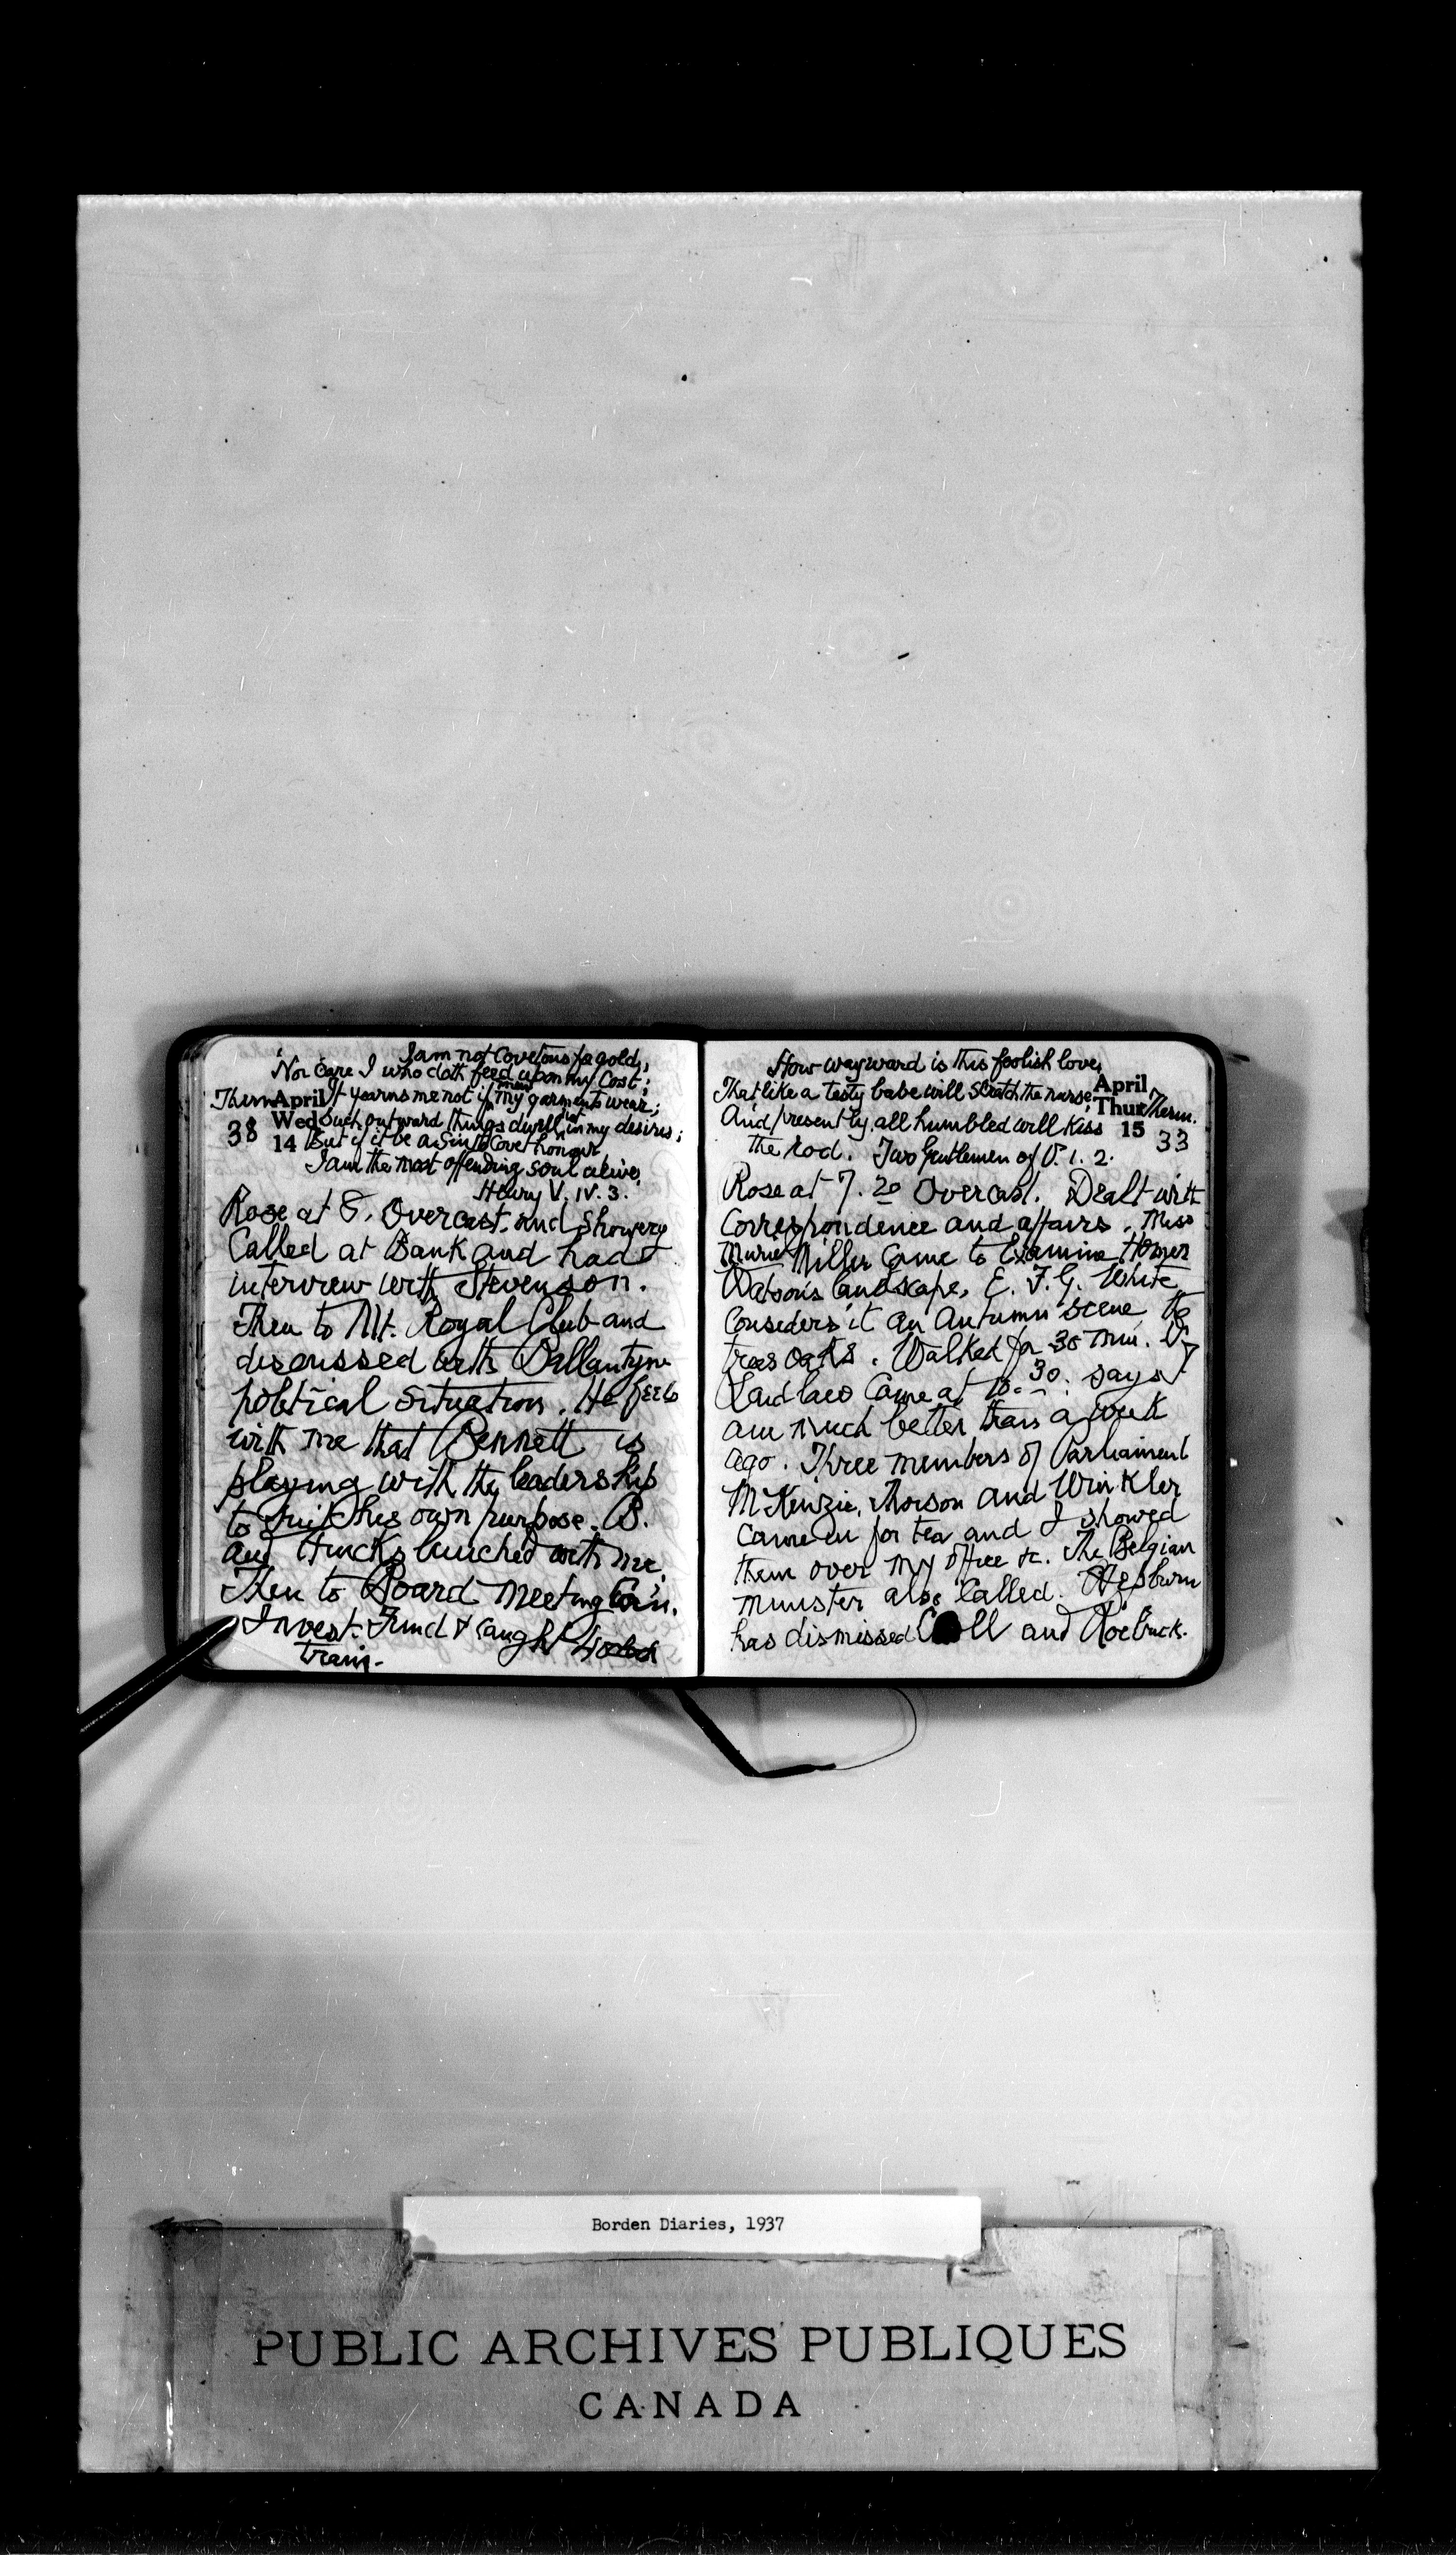 I am not covetous for gold,
Nor care I who doth feed upon my cost;
Therm April It yearns me not if men my garments wear;
Wed Such outward things dwell not in my desires;
38 14 But if it be a sin to covet honour
I am the most offending soul alive.
Henry V. IV. 3.
Rose at 8. Overcast and showery
Called at Bank and had
interview with Stevenson.
Then to Mt. Royal Club and
discussed with Ballantyne
political situation. He feels
with me that Bennett is
playing with the leadership
to suit his own purpose. B.
and lunched with me.
Then to Board meeting Can.
Invest. Fund & caught
train.
How wayward is this foolish love,
April
That like a testy babe will scratch the nurse,
Thur Therm.
And presently, all humbled will kiss 15 33
the rod. Two Gentlemen of V. 1. 2.
Rose at 7.20 Overcast. Dealt with
correspondence and affairs. Miss
Muriel Miller came to examine Homer
Watson's landscape, E. F. G. White
considers it an Autumn scene, the
trees oaks. Walked for 30 min. Dr
Laidlaw came at 12.30. says I
am much better than a week
ago. Three members of Parliament
McKenzie, Thorson and Winkler
came in for tea and I showed
them over my office &c. The Belgian
minister also called. Hepburn
has dismissed Croll and Roebuck.
Borden Diaries, 1937
PUBLIC ARCHIVES PUBLIQUES
CANADA